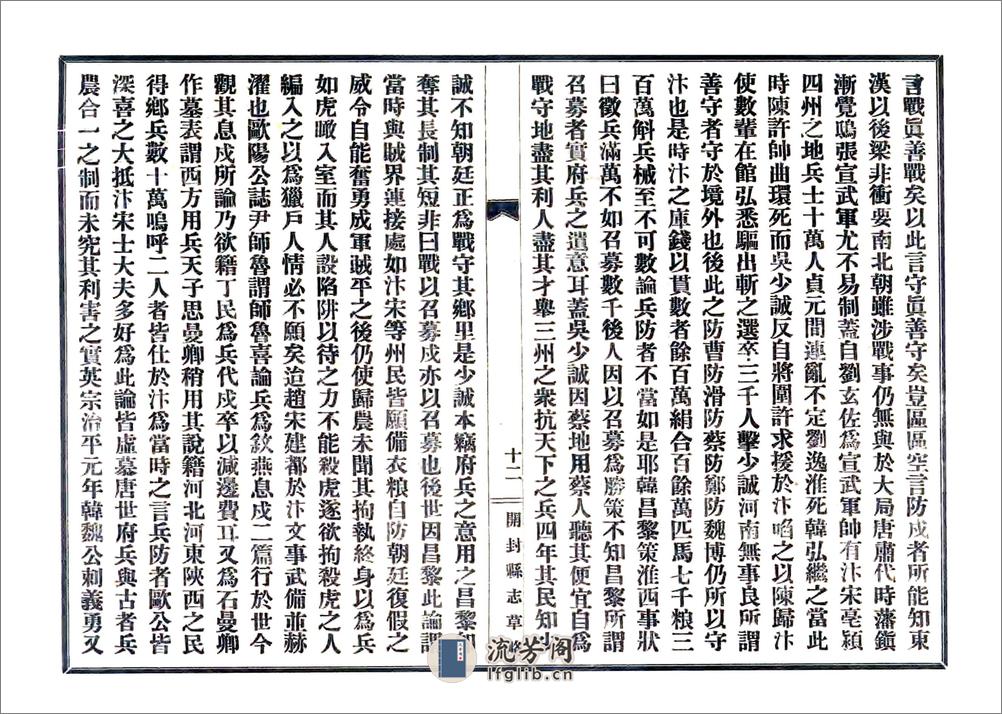 言戰眞善戰矣以此言守眞善守矣豈區區空言防戍者所能知東
漢以後梁非衝要南北朝雖涉戰事仍無與於大局唐肅代時藩鎭
漸覺鴟張宣武軍尤不易制蓋自劉玄佐爲宣武軍帥有汴宋亳潁
四州之地兵士十萬人貞元間連亂不定劉逸淮死韓弘繼之當此
時陳許帥曲環死而吳少誠反自將圍許求援於汴啗之以陳歸汴
使數輩在館弘悉驅出斬之選卒三千人擊少誠河南無事良所謂
善守者守於境外也後此之防曹防滑防蔡防鄭防魏博仍所以守
汴也是時汴之庫錢以貫數者餘百萬絹合百餘萬匹馬七千粮三
百萬斛兵械至不可數論兵防者不當如是耶韓昌黎策淮西事狀
曰徵兵滿萬不如召募數千後人因以召募爲勝策不知昌黎所謂
召募者實府兵之遺意耳蓋吳少誠因蔡地用蔡人聽其便宜自爲
戰守地盡其利人盡其才舉三州之衆抗天下之兵四年其民知
十二
開封縣志草
誠不知朝廷正爲戰守其鄉里是少誠本竊府兵之意用之昌黎
奪其長制其短非曰戰以召募戍亦以召募也後世因昌黎此論謂
當時與賊界連接處如汴宋等州民皆願備衣粮自防朝廷復假之
威令自能奮勇成軍賊平之後仍使歸農未聞其拘執終身以爲兵
如虎瞰入室而其人設陷阱以待之力不能殺虎遂欲拘殺虎之人
編入之以爲獵戶人情必不願矣迨趙宋建都於汴文事武備並赫
濯也歐陽公誌尹師魯謂師魯喜論兵爲敘燕息戍二篇行於世今
觀其息戍所論乃欲籍丁民爲兵代戍卒以減邊費耳又爲石曼卿
作墓表謂西方用兵天子思曼卿稍用其說籍河北河東陝西之民
得鄉兵數十萬嗚呼二人者皆仕於汴爲當時之言兵防者歐公皆
深喜之大抵汴宋士大夫多好爲此論皆虛慕唐世府兵與古者兵
農合一之制而未究其利害之實英宗治平元年韓魏公刺義勇又
流芳阁
lfglib.cn